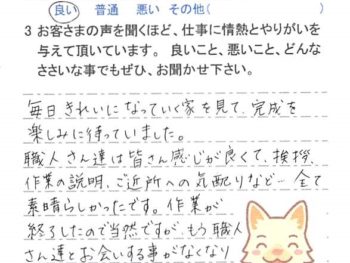 良い 普通 悪い その他( )
3 お客さまの声を聞くほど、仕事に情熱とやりがいを
与えて頂いています。 良いこと、悪いこと、どんな
ささいな事でもぜひ、お聞かせ下さい。
毎日きれいになっていく家を見て、完成を
楽しみに待っていました。
職人さん達は皆さん感じが良くて、挨拶、
作業の説明、ご近所への気配りなど…全て
素晴らしかったです。作業が
終了したので当然ですが、もう職人
さん達とお会いする事がなくなり